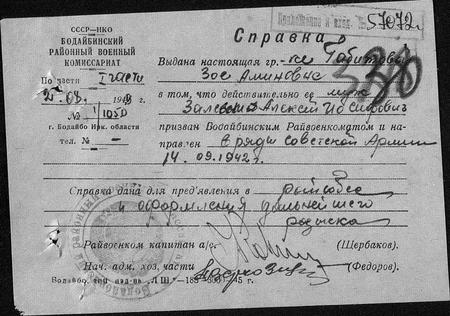 СССР—НКО
БОДАЙБИНСКИЙ
РАЙОННЫЙ ВОЕННЫЙ
КОМИССАРИАТ
По части I части
№ 1050
г. Бодайбо Ирк. области
тел. № —
57072.
Справка
Выдана настоящая гр.-ке
Зое Аминовне
в том, что действительно ее муж
Алексей Иосифович
призван Бодайбинским Райвоенкоматом и на-
правлен в ряды советской Армии
14.09.1942 г.
Справка дана для пред'явления в
и оформления дальнейшего
розыска
Райвоенком капитан а/с. (Щербаков).
Нач. адм. хоз. части (Федоров).